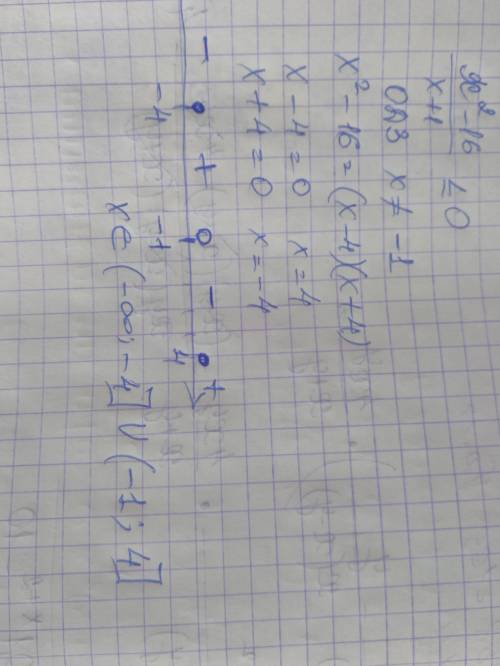 x²-16
x+1 ≤ 0
ОДЗ x ≠ -1
x²-16 = (x-4)(x+4)
x-4=0 x=4
x+4=0 x=-4
- + - +
-4 -1 4
x∈(-∞;-4]∪(-1;4]